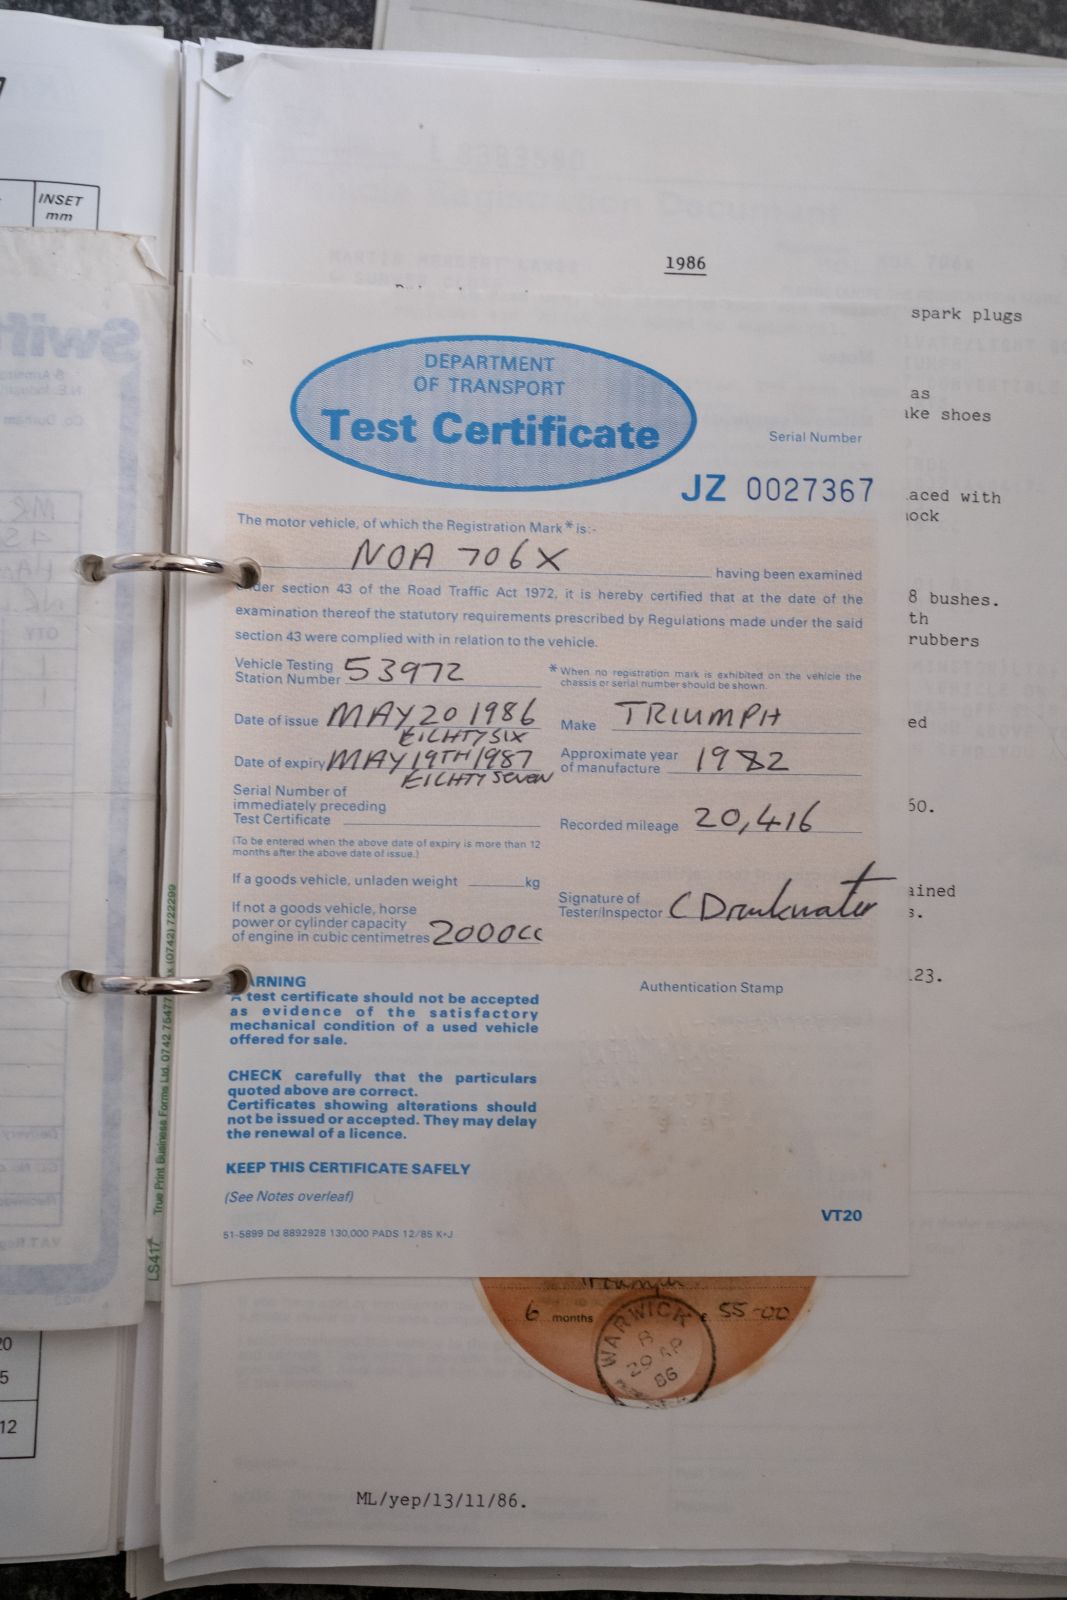 INSET
mm
1986
spark plugs
as
ake shoes
aced with
ock
8 bushes.
th
rubbers
ed
50.
ained
s.
123.
DEPARTMENT
OF TRANSPORT
Test Certificate
Serial Number
JZ 0027367
The motor vehicle, of which the Registration Mark * is:-
NOA 706X having been examined
under section 43 of the Road Traffic Act 1972, it is hereby certified that at the date of the
examination thereof the statutory requirements prescribed by Regulations made under the said
section 43 were complied with in relation to the vehicle.
Vehicle Testing
Station Number 53972
* When no registration mark is exhibited on the vehicle the
chassis or serial number should be shown.
Date of issue MAY 20 1986
EIGHTY SIX
Make TRIUMPH
Date of expiry MAY 19TH 1987
EIGHTY SEVEN
Approximate year
of manufacture 1982
Serial Number of
immediately preceding
Test Certificate
Recorded mileage 20,416
(To be entered when the above date of expiry is more than 12
months after the above date of issue.)
If a goods vehicle, unladen weight kg
If not a goods vehicle, horse
power or cylinder capacity
of engine in cubic centimetres 2000cc
Signature of
Tester/Inspector C Drinkwater
WARNING
A test certificate should not be accepted
as evidence of the satisfactory
mechanical condition of a used vehicle
offered for sale.
Authentication Stamp
CHECK carefully that the particulars
quoted above are correct.
Certificates showing alterations should
not be issued or accepted. They may delay
the renewal of a licence.
KEEP THIS CERTIFICATE SAFELY
(See Notes overleaf)
VT20
51-5899 Dd 8892928 130,000 PADS 12/85 K+J
LS417 True Print Business Forms Ltd. 0742
(0742) 722299
Triumph
6 months £ 55-00
WARWICK
B
29 AP
86
ML/yep/13/11/86.
20
5
12